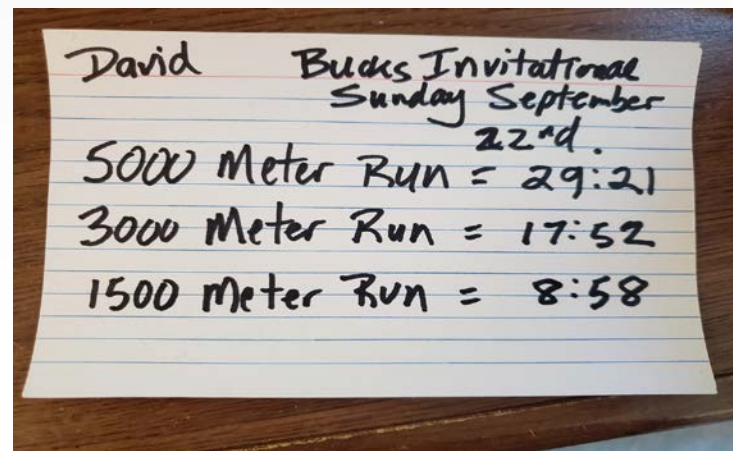 David Bucks Invitational
Sunday September
22nd.
5000 Meter Run = 29:21
3000 Meter Run = 17:52
1500 Meter Run = 8:58